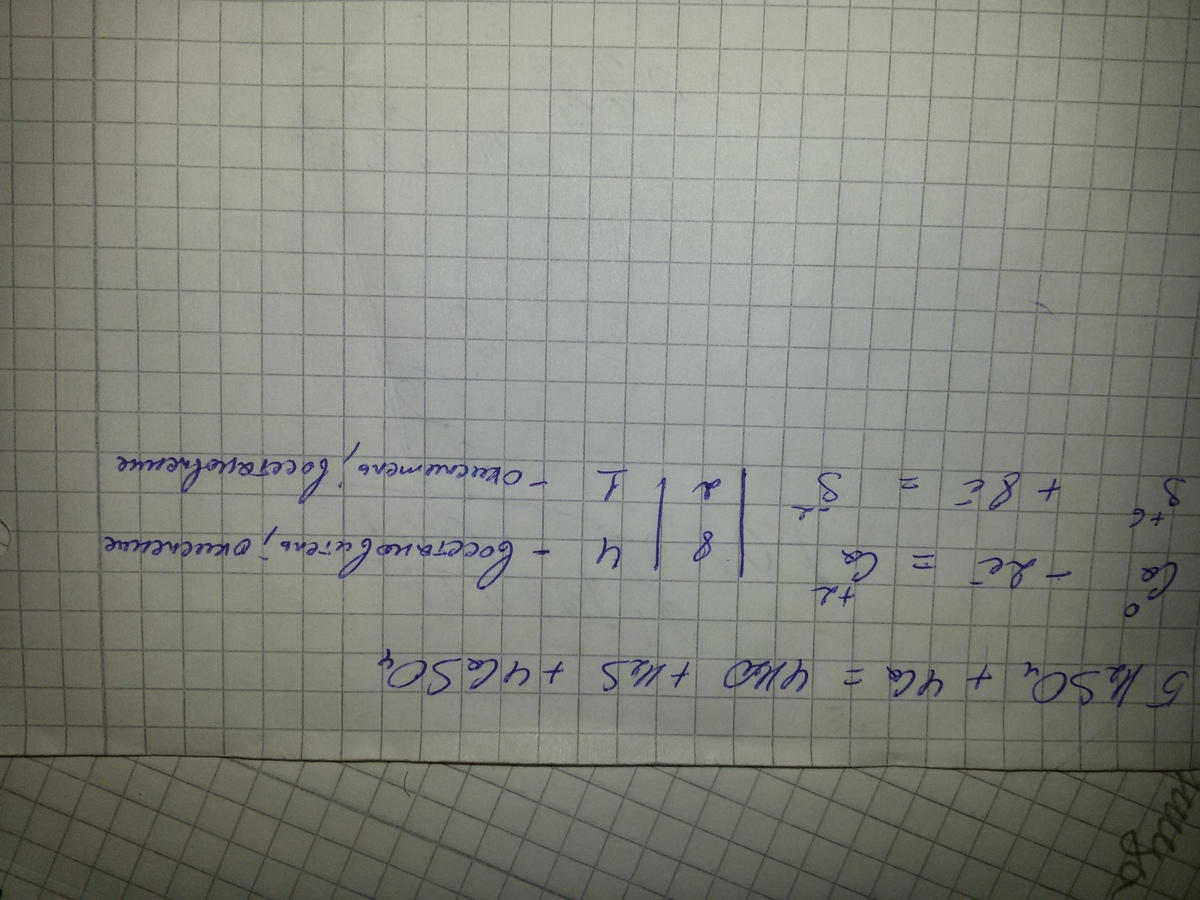 5 H₂SO₄ + 4Ca = 4H₂O + H₂S + 4CaSO₄
Ca⁰ - 2e⁻ = Ca⁺² | 8 | 4 - восстановитель, окисление
S⁺⁶ + 8e⁻ = S⁻² | 2 | 1 - окислитель, восстановление